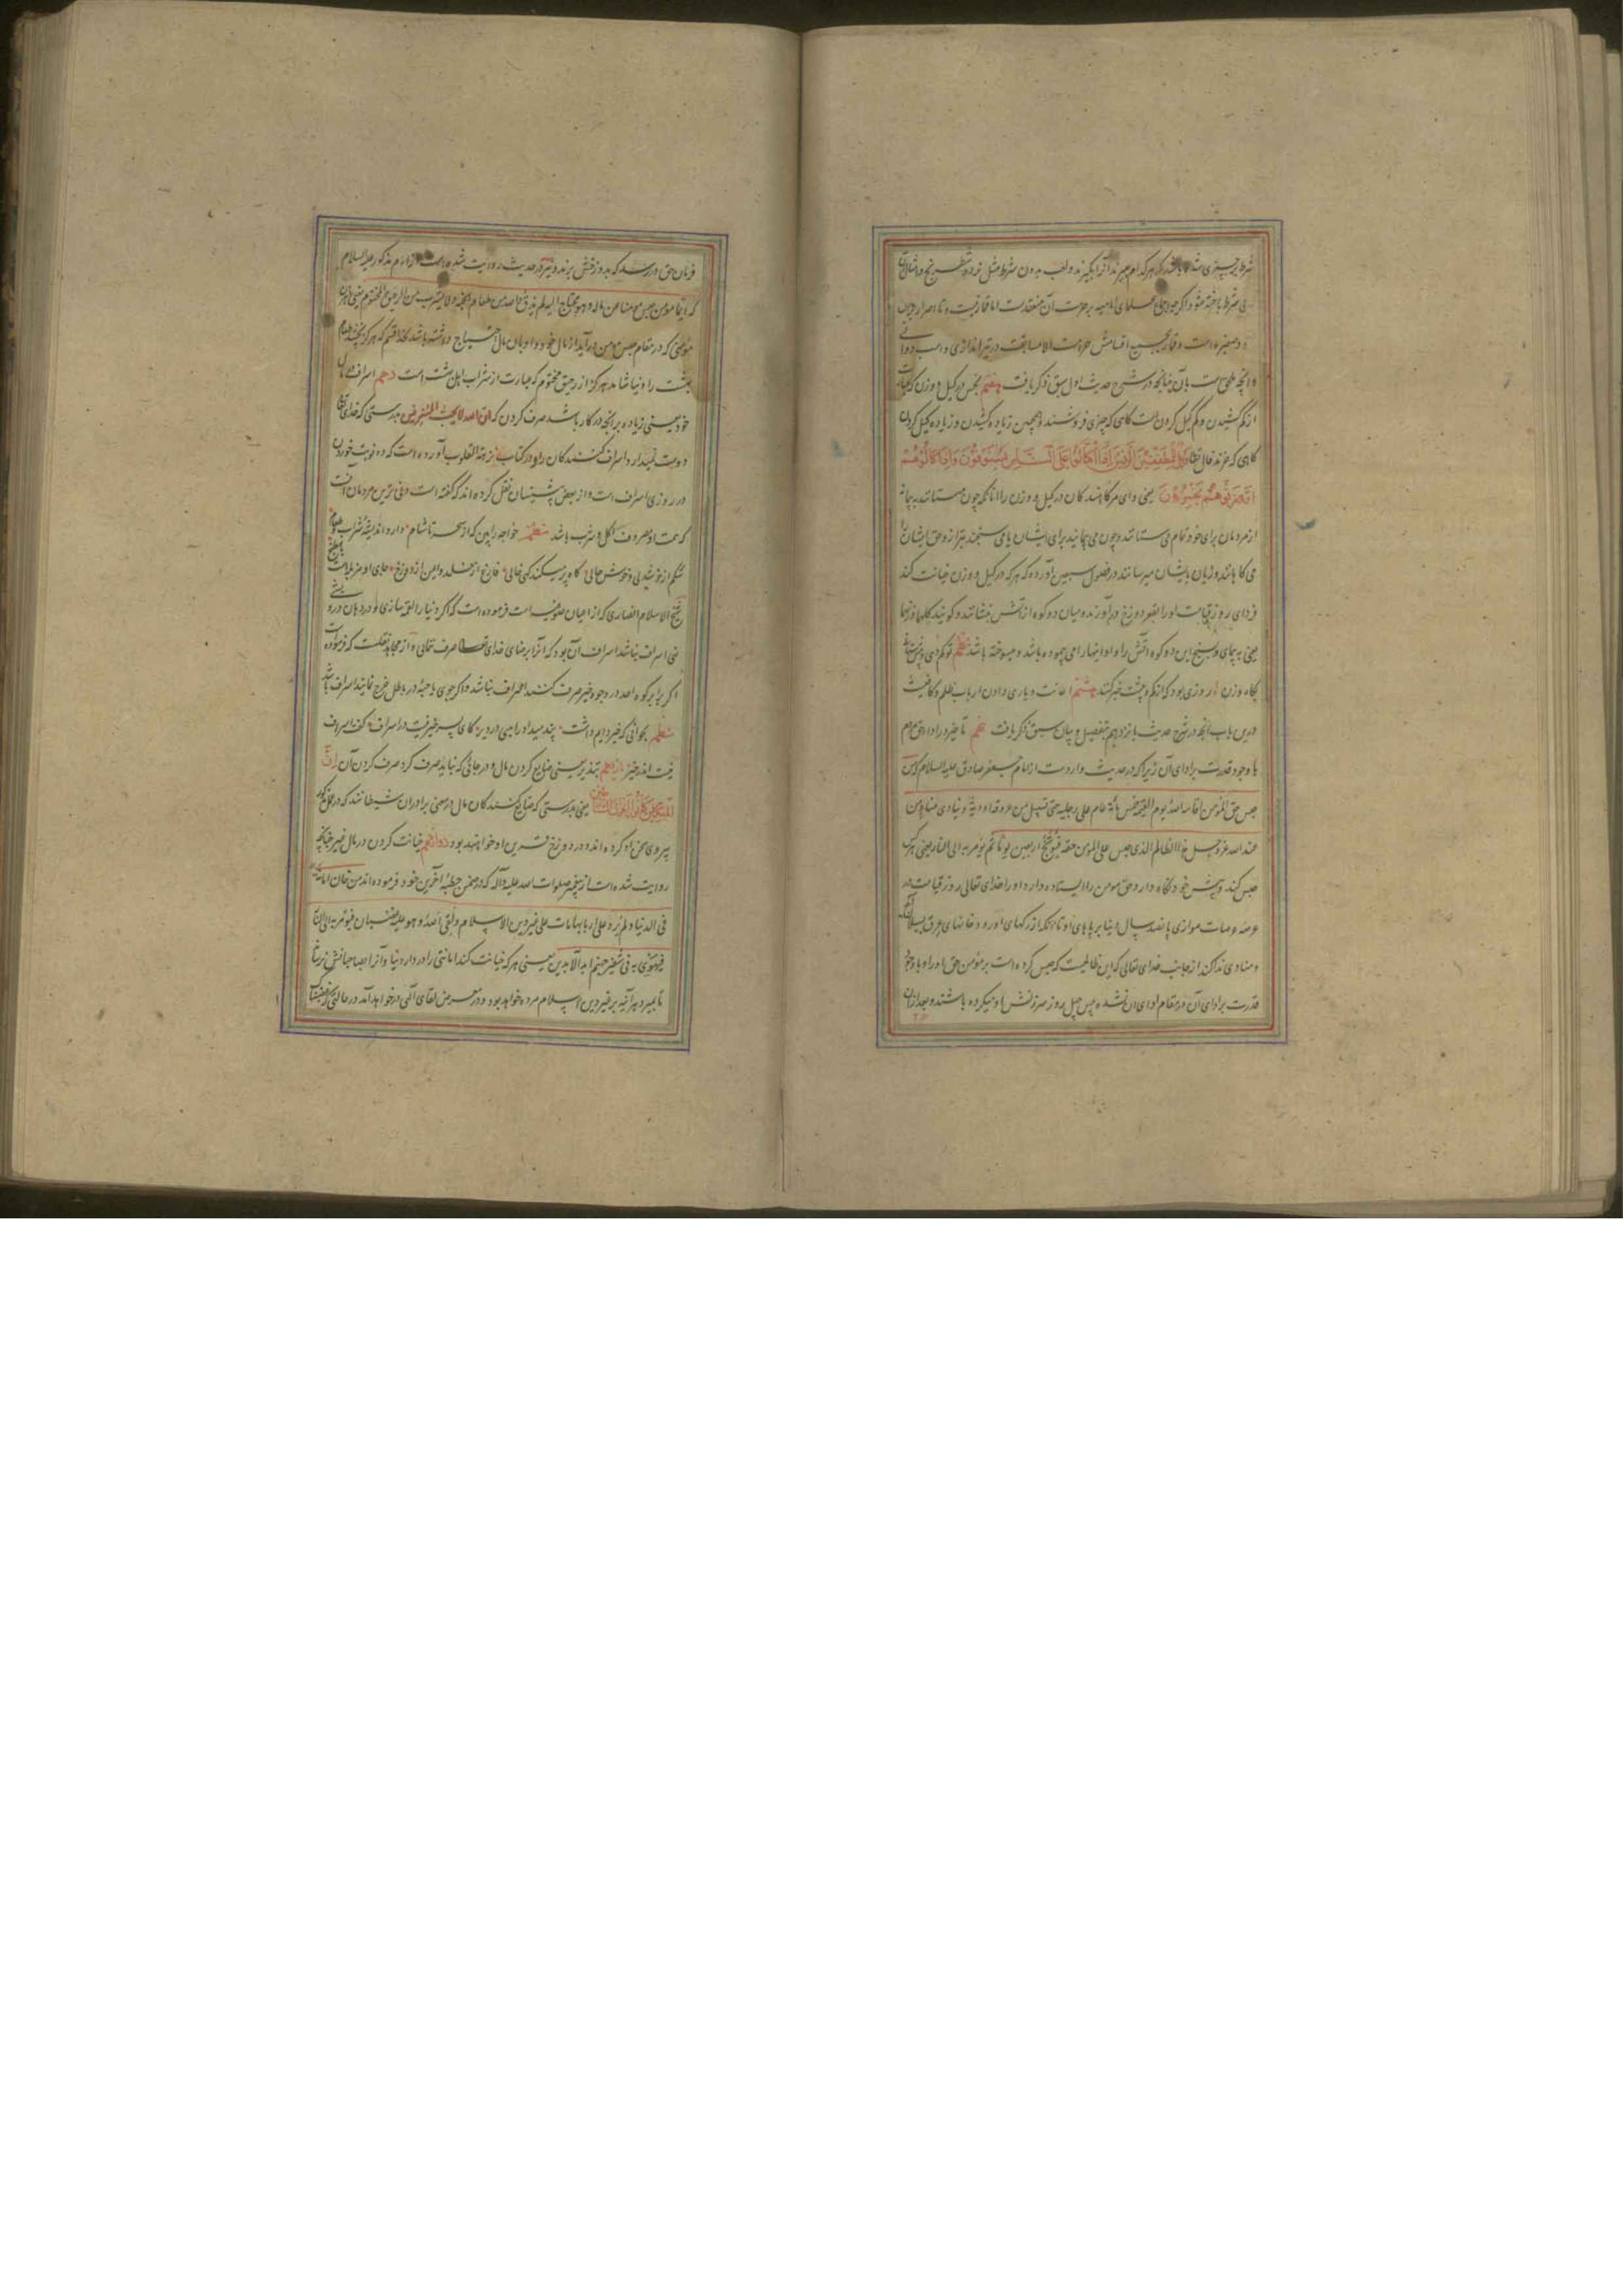 شرط بر چیزی شده باشد که هر کدام ببرند آنرا بگیرند و لعب بدون شرط مثل نرد و شطرنج و امثال آن
بی شرط باخته شود اگر چه علمای امامیه بر حرمت آن منعقدست اما قمار نیست و تا اصرار بر آن
نرود صغیره است و قمار بجمیع اقسامش حرامست الا مسابقت در تیراندازی و اسب دوانی
و انچه ملحق است بآن چنانچه در شرح حدیث اول سبق ذکر یافت هفتم بخس در کیل و وزن که عبارت
از کم کشیدن و کم کیل کردن است کاهی که چیزی فروشند و همچنین زیاده کشیدن و زیاده کیل کردن
کاهی که خرند قال تعالی وَيْلٌ لِلْمُطَفِّفِينَ الَّذِينَ إِذَا اكْتَالُوا عَلَى النَّاسِ يَسْتَوْفُونَ وَإِذَا كَالُوهُمْ
أَوْ وَزَنُوهُمْ يُخْسِرُونَ یعنی وای مر کاهندکان در کیل و وزن را آنانکه چون میستانند به پیمانه
از مردمان برای خود تمام می ستانند و چون می پیمانید برای ایشان یا می سنجند بترازو حق ایشان را
می کاهانند و زیان بایشان میرسانند در فصول سبعین آورده که هر که در کیل و وزن خیانت کند
فردای روز قیامت او را بقعر دوزخ درآورند و میان دو کوه از آتش بنشانند و کویند کلهما وزنهما
یعنی به پیمای و بسنج این دو کوه آتش را و او اینها را می پیموده باشد و میسوخته باشد نظم تو کم دهی و بیش ستانی
بکاه وزن روزی بود که از کم و بیشت خبر کنند هشتم اعانت و یاری دادن ارباب ظلم و کافیست
درین باب انچه در شرح حدیث یازدهم بتفصیل و بیان سبق ذکر یافت نهم تاخیر در ادا حق مردم
با وجود قدرت بر ادای آن زیرا که در حدیث واردست از امام جعفر صادق علیه السلام که من
حبس حق المؤمن اقامه الله یوم القیمة خمس مائة عام علی رجلیه حتی تسیل من عرقه اودیة و ینادی مناد من
عند الله عز و جل هذا الظالم الذی حبس علی المؤمن حقه فیوبخ اربعین یوما ثم یؤمر به الی النار یعنی هر که
حبس کند و پیش خود نکاه دارد حق مؤمن را ایستاده دارد او را خدای تعالی روز قیامت در
عرصه عرصات موازی پانصد سال دنیا بر پاهای او تا انکه از رکهای او رودخانهای عرق سیلان کند
و منادی ندا کند از جانب خدای تعالی که این ظالمیست که حبس کرده است بر مؤمن حق او را و با وجود
قدرت بر ادای آن در مقام ادای ان نشده پس چهل روز سرزنش او میکرده باشند و بعد ازان
فرمان حق در رسد که بدوزخش برند و نیز در حدیث روایت شده است از امام مذکور علیه السلام
که ایما مؤمن حبس مؤمنا عن ماله و هو محتاج الیه لم یذق والله من طعام الجنة و لا یشرب من الرحیق المختوم یعنی هر ان
مؤمنی که در مقام حبس مومن درآید از مال خود و او بان مال احتیاج داشته باشد بخدا قسم که هرکز نچشد طعام
بهشت را و نیاشامد هرکز از رحیق مختوم که عبارت از شراب اهل بهشت است دهم اسراف در مال
خود یعنی زیاده بر انچه در کار باشد صرف کردن که ان الله لا یحب المسرفین بدرستی که خدای تعالی
دوست نمیدارد اسراف کنندکان را و در کتاب نزهة القلوب آورده است که دو نوبت خوردن
در روزی اسراف است و از بعض پیشینیان نقل کرده اند که گفته است دنی ترین مردمان آنست
که همت او مصروف اکل و شرب باشد نظم خواجه را بین که از سحر تا شام دارد اندیشهٔ شراب و طعام
شکم از خوشدلی و خوش حالی کاه پر میکند کهی خالی فارغ از خلد و ایمن از دوزخ جای او مزبله است یا مطبخ
شیخ الاسلام انصاری که از اعیان صوفیه است فرموده است که اکر دنیا را لقمه سازی و در دهان درویشی
نهی اسراف نباشد اسراف آن بود که آنرا بر ضای خدای تعالی صرف نمائی و از مجاهد نقلست که فرموده است
اکر برابر کوه احد در وجوه خیر صرف کنند اسراف نباشد و اکر جوی یا حبه در باطل خرج نمایند اسراف باشد
نظم بجوانی که خیر دایم داشت پند میداد راهبی در دیر کای پسر خیر نیست در اسراف گفت اسراف
نیست اندر خیر یازدهم تبذیر یعنی ضایع کردن مال و در جائی که نباید صرف کرد صرف کردن آن إِنَّ
الْمُبَذِّرِينَ كَانُوا إِخْوَانَ الشَّيَاطِينِ یعنی بدرستی که ضایع کنندکان مال در معنی برادران شیطانند که در عمل مذکور
پیروی سخن او کرده اند و در دوزخ قرین او خواهند بود دوازدهم خیانت کردن در مال غیر چنانچه
روایت شده است از پیغمبر صلوات الله علیه و آله که در ضمن خطبهٔ آخرین خود فرموده اند من خان امانته
فی الدنیا و لم یرد علی اربابها مات علی غیر دین الاسلام و لقی الله و هو علیه غضبان فیؤمر به الی النار
فیهوی به فی شفیر جهنم ابد الآبدین یعنی هر که خیانت کند امانتی را در دار دنیا و آنرا بصاحبانش نرساند
تا بمیرد هر آینه بر غیر دین اسلام مرده خواهد بود و در معرض لقای آلهی در خواهد آمد در حالتی که غضبناک